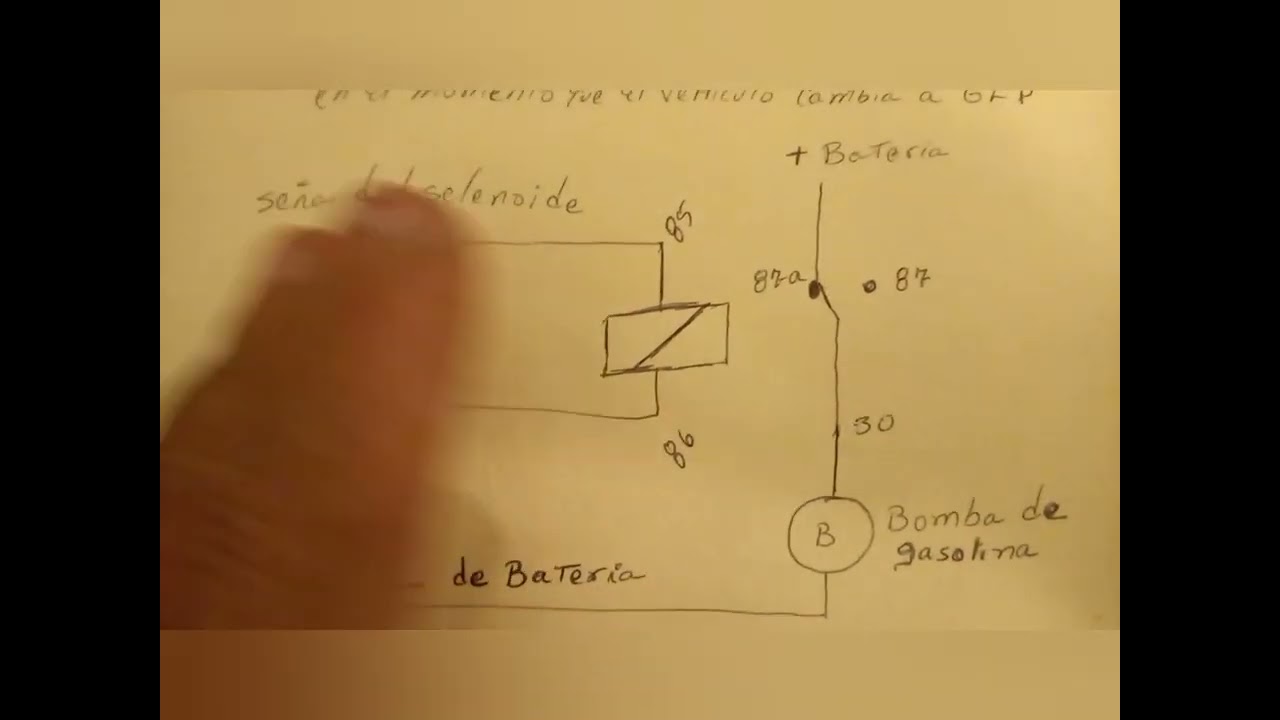 en el momento que el vehiculo cambia a GLP
+ Bateria
señal del selenoide
85
87a
87
30
86
B
Bomba de
gasolina
- de Bateria